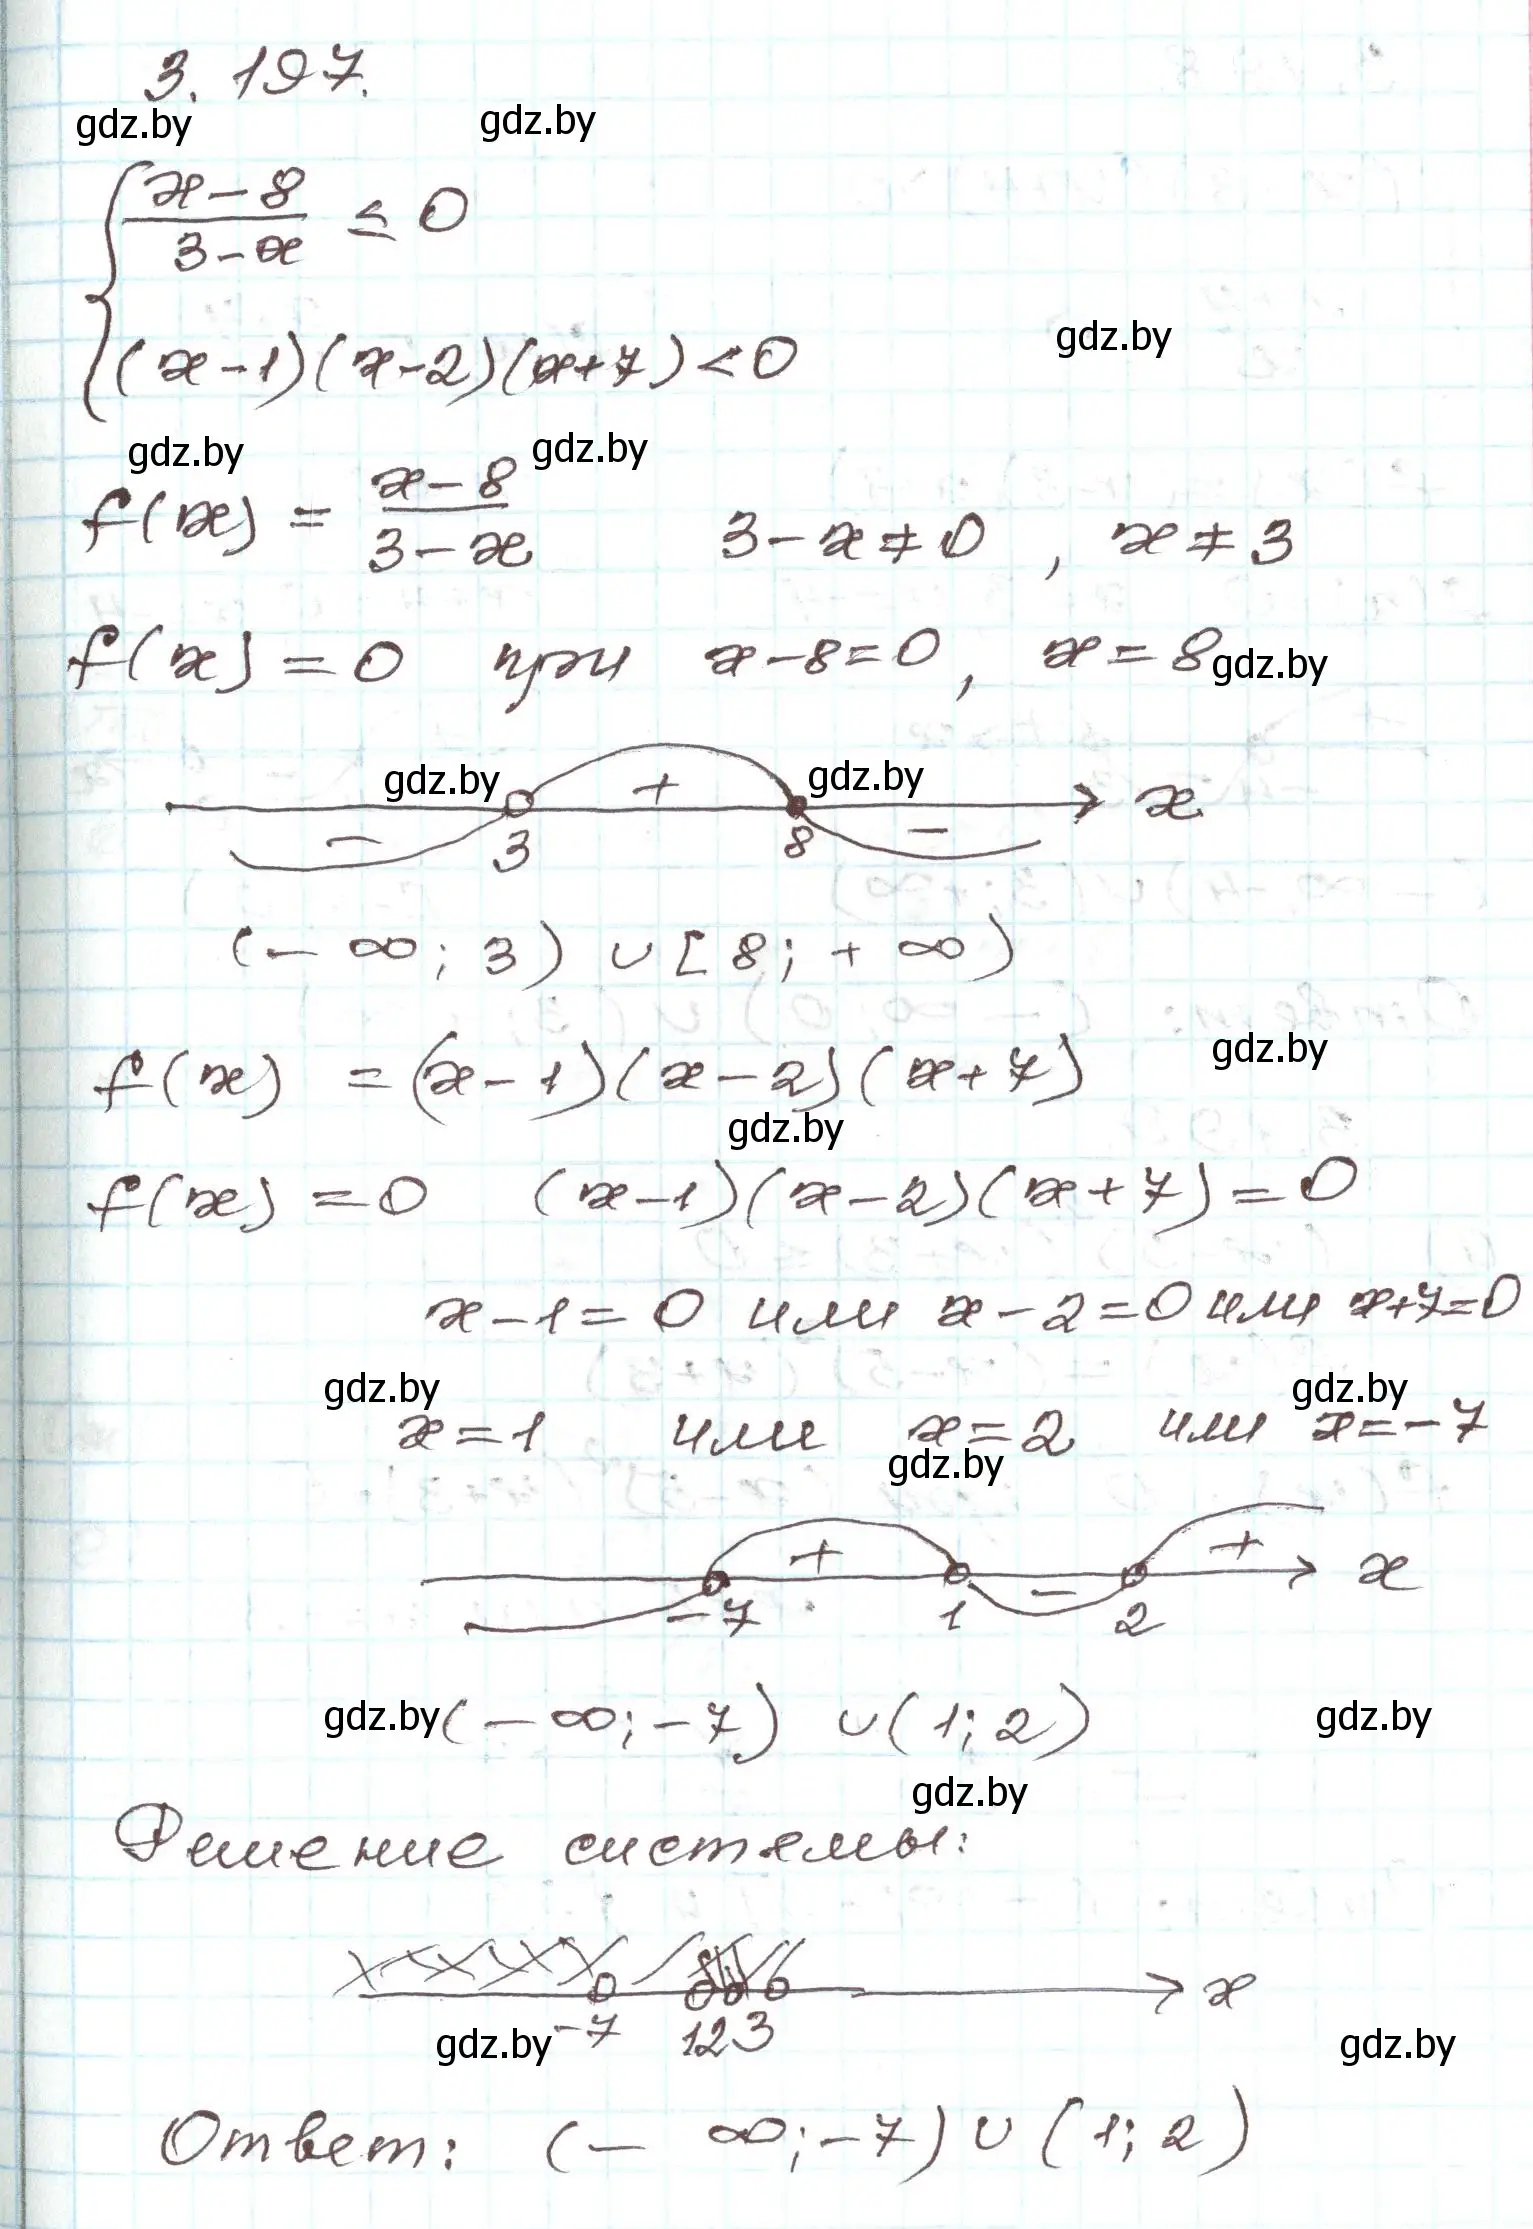 3.197.
gdz.by gdz.by
x-8
3-x ≤ 0
(x-1)(x-2)(x+7)<0 gdz.by
gdz.by gdz.by
f(x) = x-8 / 3-x 3-x≠0, x≠3
f(x)=0 при x-8=0, x=8 gdz.by
gdz.by + gdz.by x
- 3 8 -
(-∞; 3) ∪ [8; +∞)
f(x) =(x-1)(x-2)(x+7) gdz.by
gdz.by
f(x)=0 (x-1)(x-2)(x+7)=0
x-1=0 или x-2=0 или x+7=0
gdz.by gdz.by
x=1 или x=2 или x=-7
gdz.by
+ - + x
-7 1 2
gdz.by (-∞;-7) ∪(1;2) gdz.by
gdz.by
Решение системы:
x
-7 1 2 3
gdz.by gdz.by
Ответ: (-∞;-7)∪(1;2)